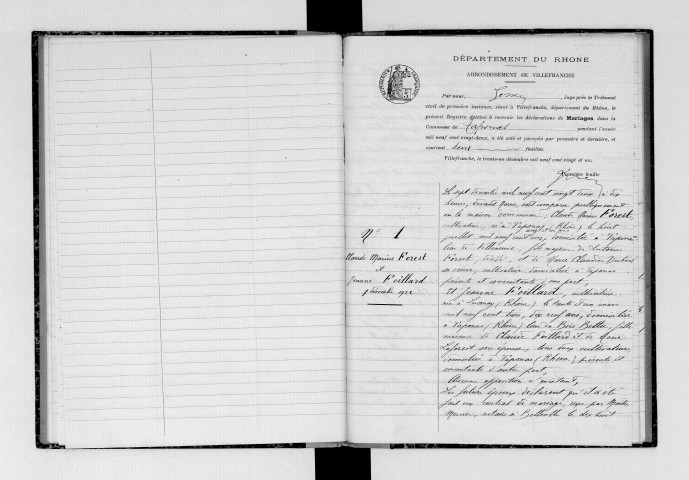 DÉPARTEMENT DU RHONE
ARRONDISSEMENT DE VILLEFRANCHE
Par nous, Juge près le Tribunal
civil de première instance, séant à Villefranche, département du Rhône, le
présent Registre destiné à recevoir les déclarations de Mariages dans la
Commune de Taponas pendant l'année
mil neuf cent vingt-deux, a été coté et paraphé par première et dernière, et
contient deux feuilles.
Villefranche, le trente-un décembre mil neuf cent vingt et un.
Première feuille
N° 1
Claude Marius Forest
et
Jeanne Foillard
7 décembre 1922
Le sept décembre mil neuf cent vingt deux, à dix
heures, devant Nous, ont comparu publiquement
en la maison commune: Claude Marius Forest,
cultivateur, né à Taponas (Rhône) le huit
juillet mil neuf cent domicilié à Taponas
lieu de fils majeur de Antoine
Forest, et de Marie Claudine
sa veuve, cultivatrice domiciliée à Taponas
présente et consentante, d'une part,
Et Jeanne Foillard, cultivatrice,
née à (Rhône) le trente et un mars
mil neuf cent trois, dix neuf ans, domiciliée
à Taponas (Rhône) lieu du Bois Bettu, fille
mineure de Claude Foillard et de Marie
Laforest son épouse, tous deux cultivateurs,
domiciliés à Taponas (Rhône) présents et
consentants d'autre part,
Aucune opposition n'existant,
Les futurs époux déclarent qu'il a été
fait un contrat de mariage, reçu par Maître
Mercier, notaire à Belleville le dix huit